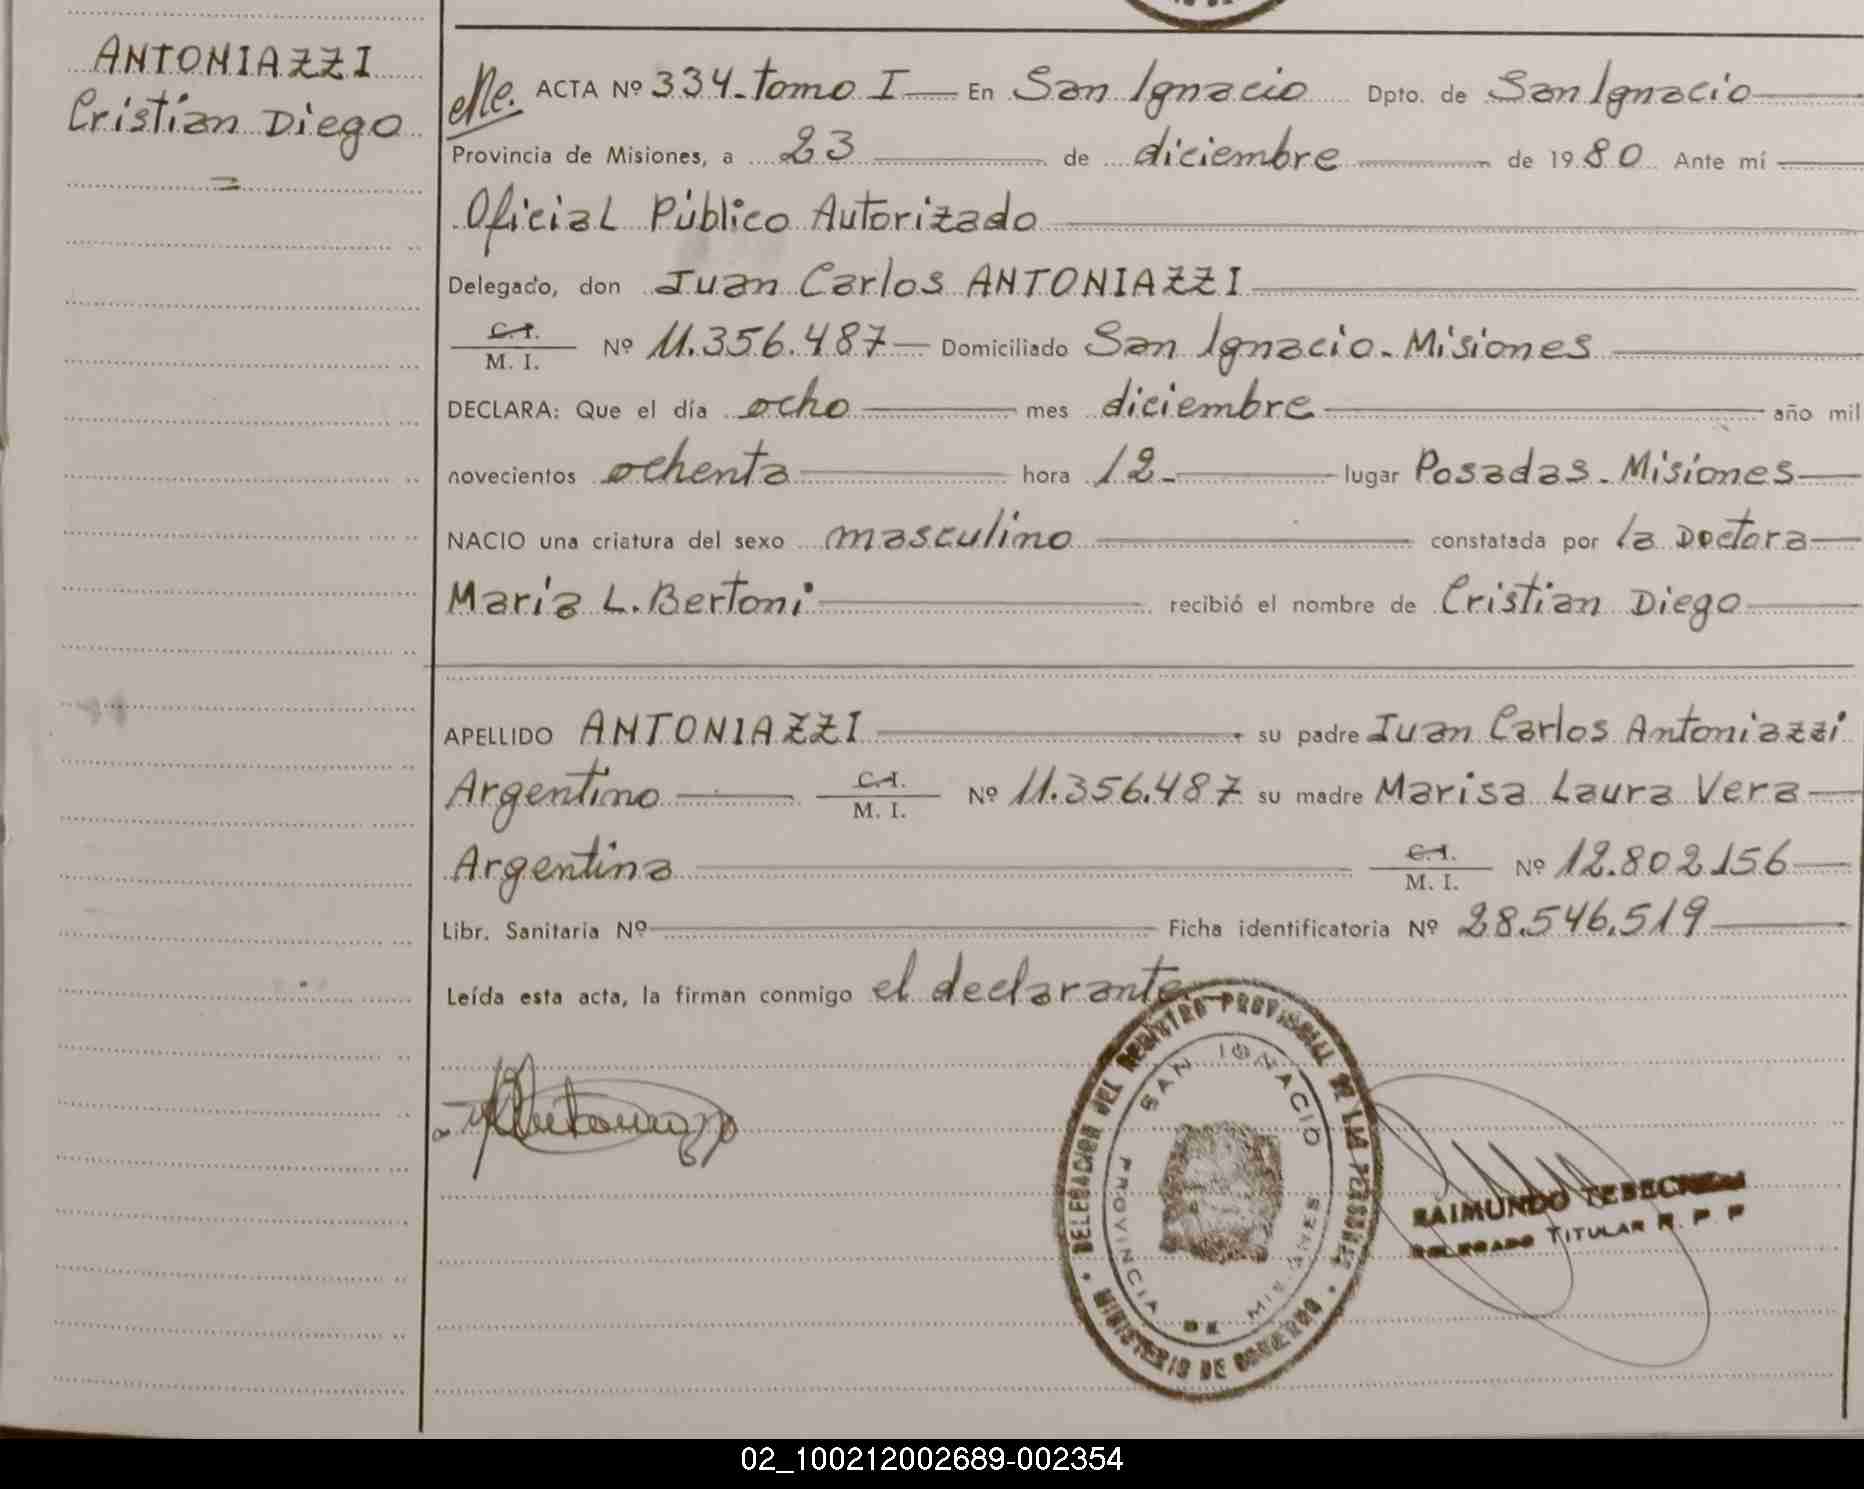 ANTONIAZZI
Cristian Diego
ACTA Nº 334-tomo I — En San Ignacio Dpto. de San Ignacio
Provincia de Misiones, a 23 de diciembre de 1980 Ante mí
Oficial Público Autorizado
Delegado, don Juan Carlos ANTONIAZZI
C.I.
M. I. Nº 11.356.487 — Domiciliado San Ignacio - Misiones
DECLARA: Que el día ocho mes diciembre año mil
novecientos ochenta hora 12 - lugar Posadas - Misiones
NACIO una criatura del sexo masculino constatada por la Doctora
María L. Bertoni recibió el nombre de Cristian Diego
APELLIDO ANTONIAZZI su padre Juan Carlos Antoniazzi
Argentino C.I.
M. I. Nº 11.356.487 su madre Marisa Laura Vera
Argentina C.I.
M. I. Nº 12.802.156
Libr. Sanitaria Nº Ficha identificatoria Nº 28.546.519
Leída esta acta, la firman conmigo el declarante
DELEGACION DEL REGISTRO PROVINCIAL DE LAS PERSONAS
SAN IGNACIO
PROVINCIA DE MISIONES
MINISTERIO DE GOBIERNO
RAIMUNDO
DELEGADO TITULAR R. P. P
02_100212002689-002354